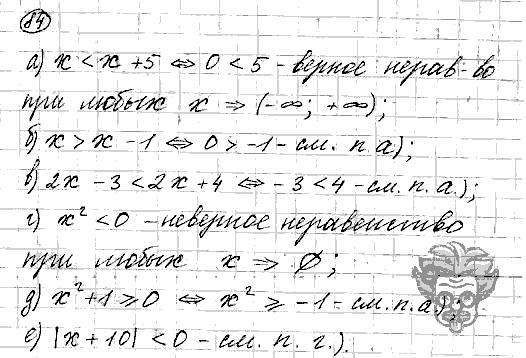 84
а) x < x + 5 ⇔ 0 < 5 - верное нерав-во
при любых x ⇒ (-∞; +∞);
б) x > x - 1 ⇔ 0 > -1 - см. п. а);
в) 2x - 3 < 2x + 4 ⇔ -3 < 4 - см. п. а.);
г) x² < 0 - неверное неравенство
при любых x ⇒ ∅;
д) x² + 1 ⩾ 0 ⇔ x² ⩾ -1 - см. п. а.);
е) |x + 10| < 0 - см. п. г.).